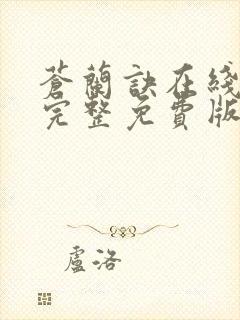 蒼蘭訣在綫
完整免費版
盧洛